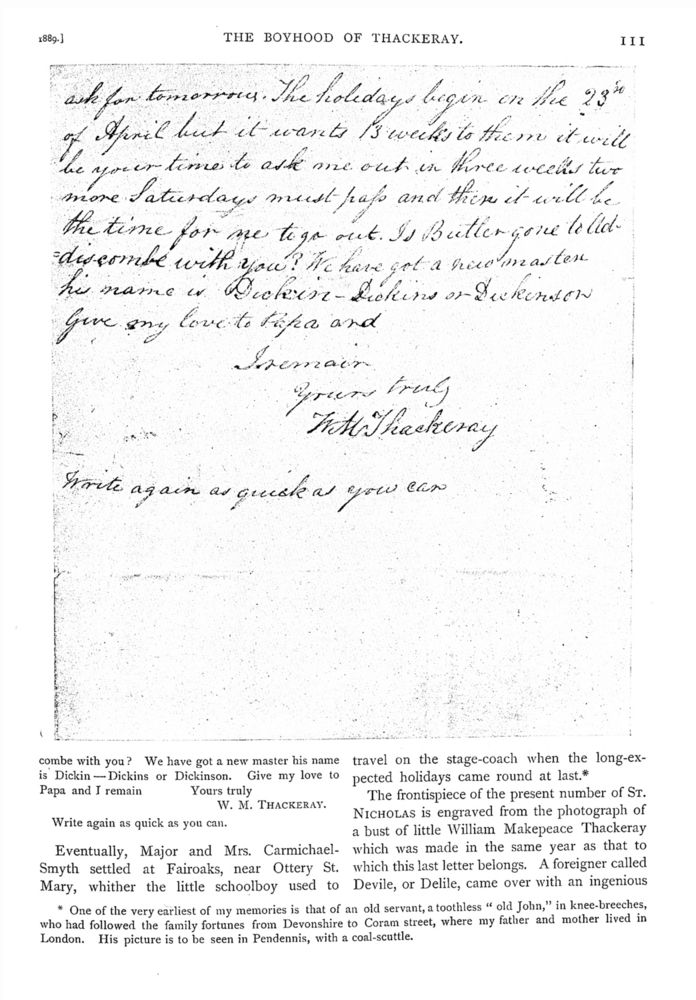 1889.] THE BOYHOOD OF THACKERAY. 111
ask for tomorrow. The holidays begin on the 23rd
of April but it wants 13 weeks to them it will
be your time to ask me out in three weeks two
more Saturdays must pass and then it will be
the time for me to go out. Is Butler gone to Ad-
=discombe with you? We have got a new master
his name is Dickin – Dickins or Dickinson
Give my love to Papa and
I remain
Yours truly
W M Thackeray
Write again as quick as you can
combe with you? We have got a new master his name
is Dickin — Dickins or Dickinson. Give my love to
Papa and I remain Yours truly
W. M. THACKERAY.
Write again as quick as you can.
Eventually, Major and Mrs. Carmichael-
Smyth settled at Fairoaks, near Ottery St.
Mary, whither the little schoolboy used to
travel on the stage-coach when the long-ex-
pected holidays came round at last.*
The frontispiece of the present number of ST.
NICHOLAS is engraved from the photograph of
a bust of little William Makepeace Thackeray
which was made in the same year as that to
which this last letter belongs. A foreigner called
Devile, or Delile, came over with an ingenious
* One of the very earliest of my memories is that of an old servant, a toothless " old John," in knee-breeches,
who had followed the family fortunes from Devonshire to Coram street, where my father and mother lived in
London. His picture is to be seen in Pendennis, with a coal-scuttle.